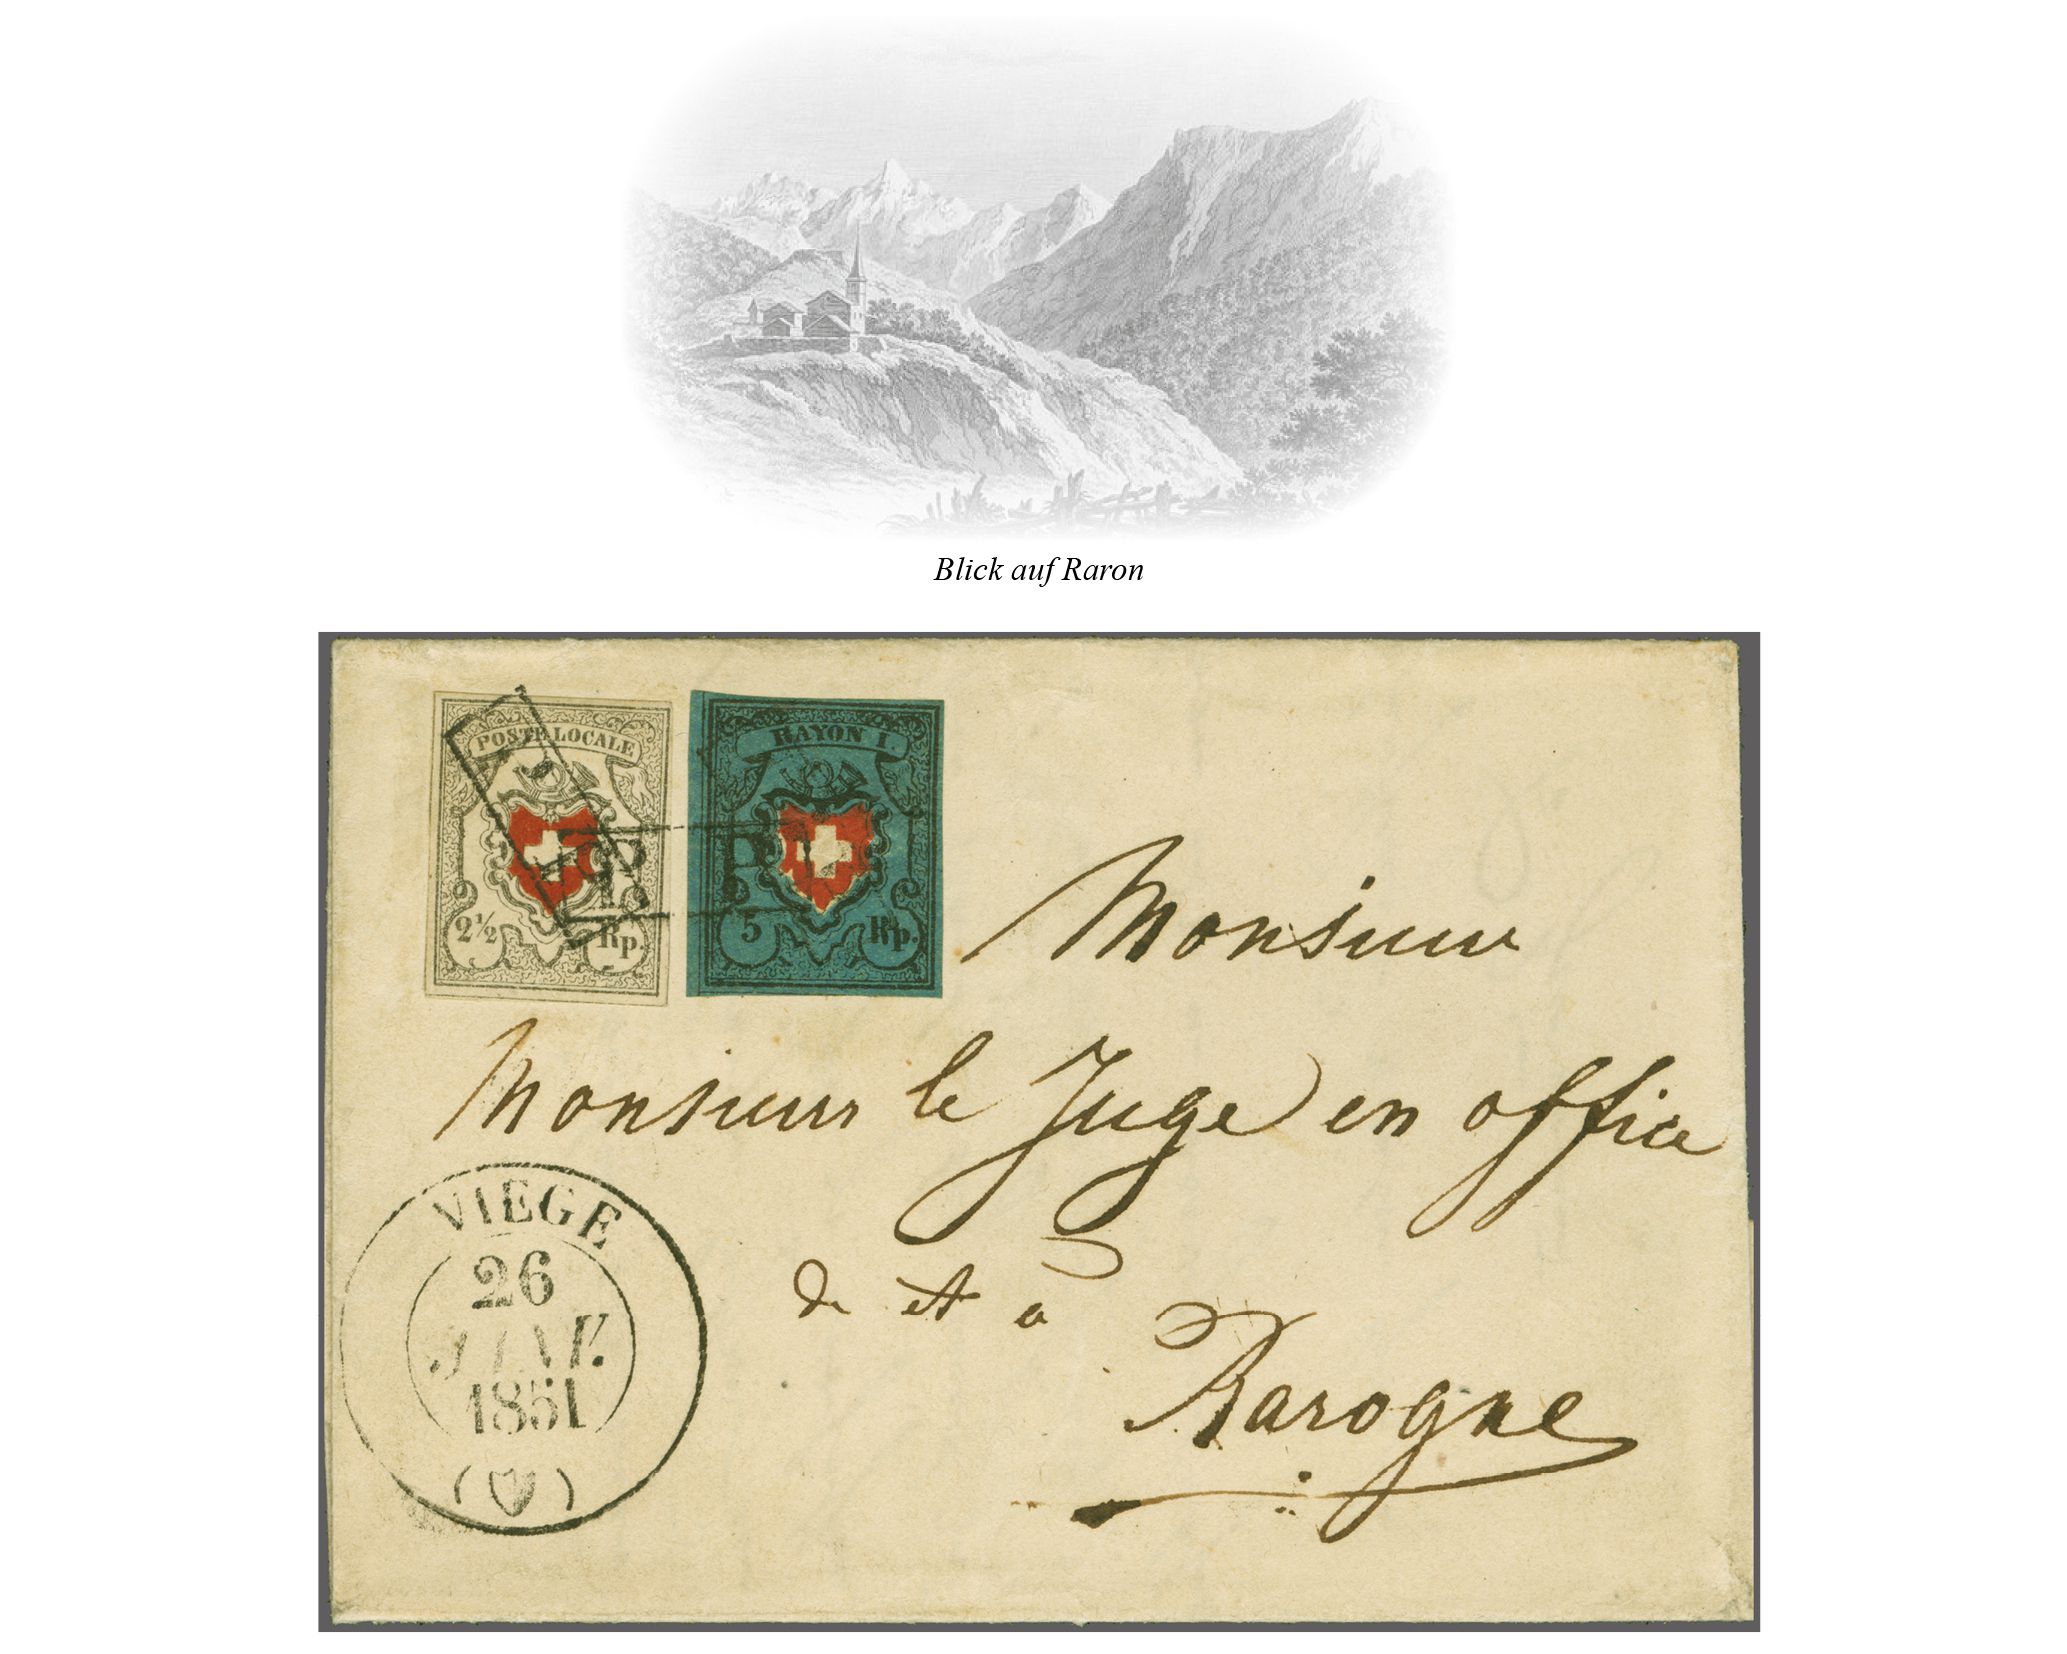 Blick auf Raron
POSTE LOCALE
2½ Rp.
RAYON I.
5 Rp.
P.P.
Monsieur
Monsieur le Juge en office
de et à
Rarogne
VIEGE
26
JANV.
1851